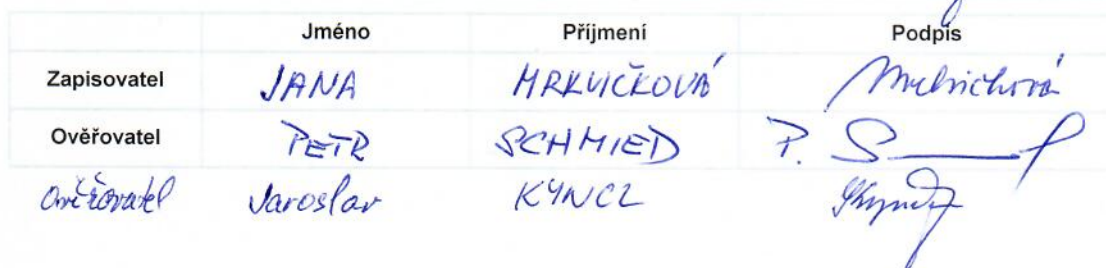 Jméno Příjmení Podpis
Zapisovatel JANA MRKVIČKOVÁ Mrkvičková
Ověřovatel PETR SCHMIED P. S
Ověřovatel Jaroslav KYNCL